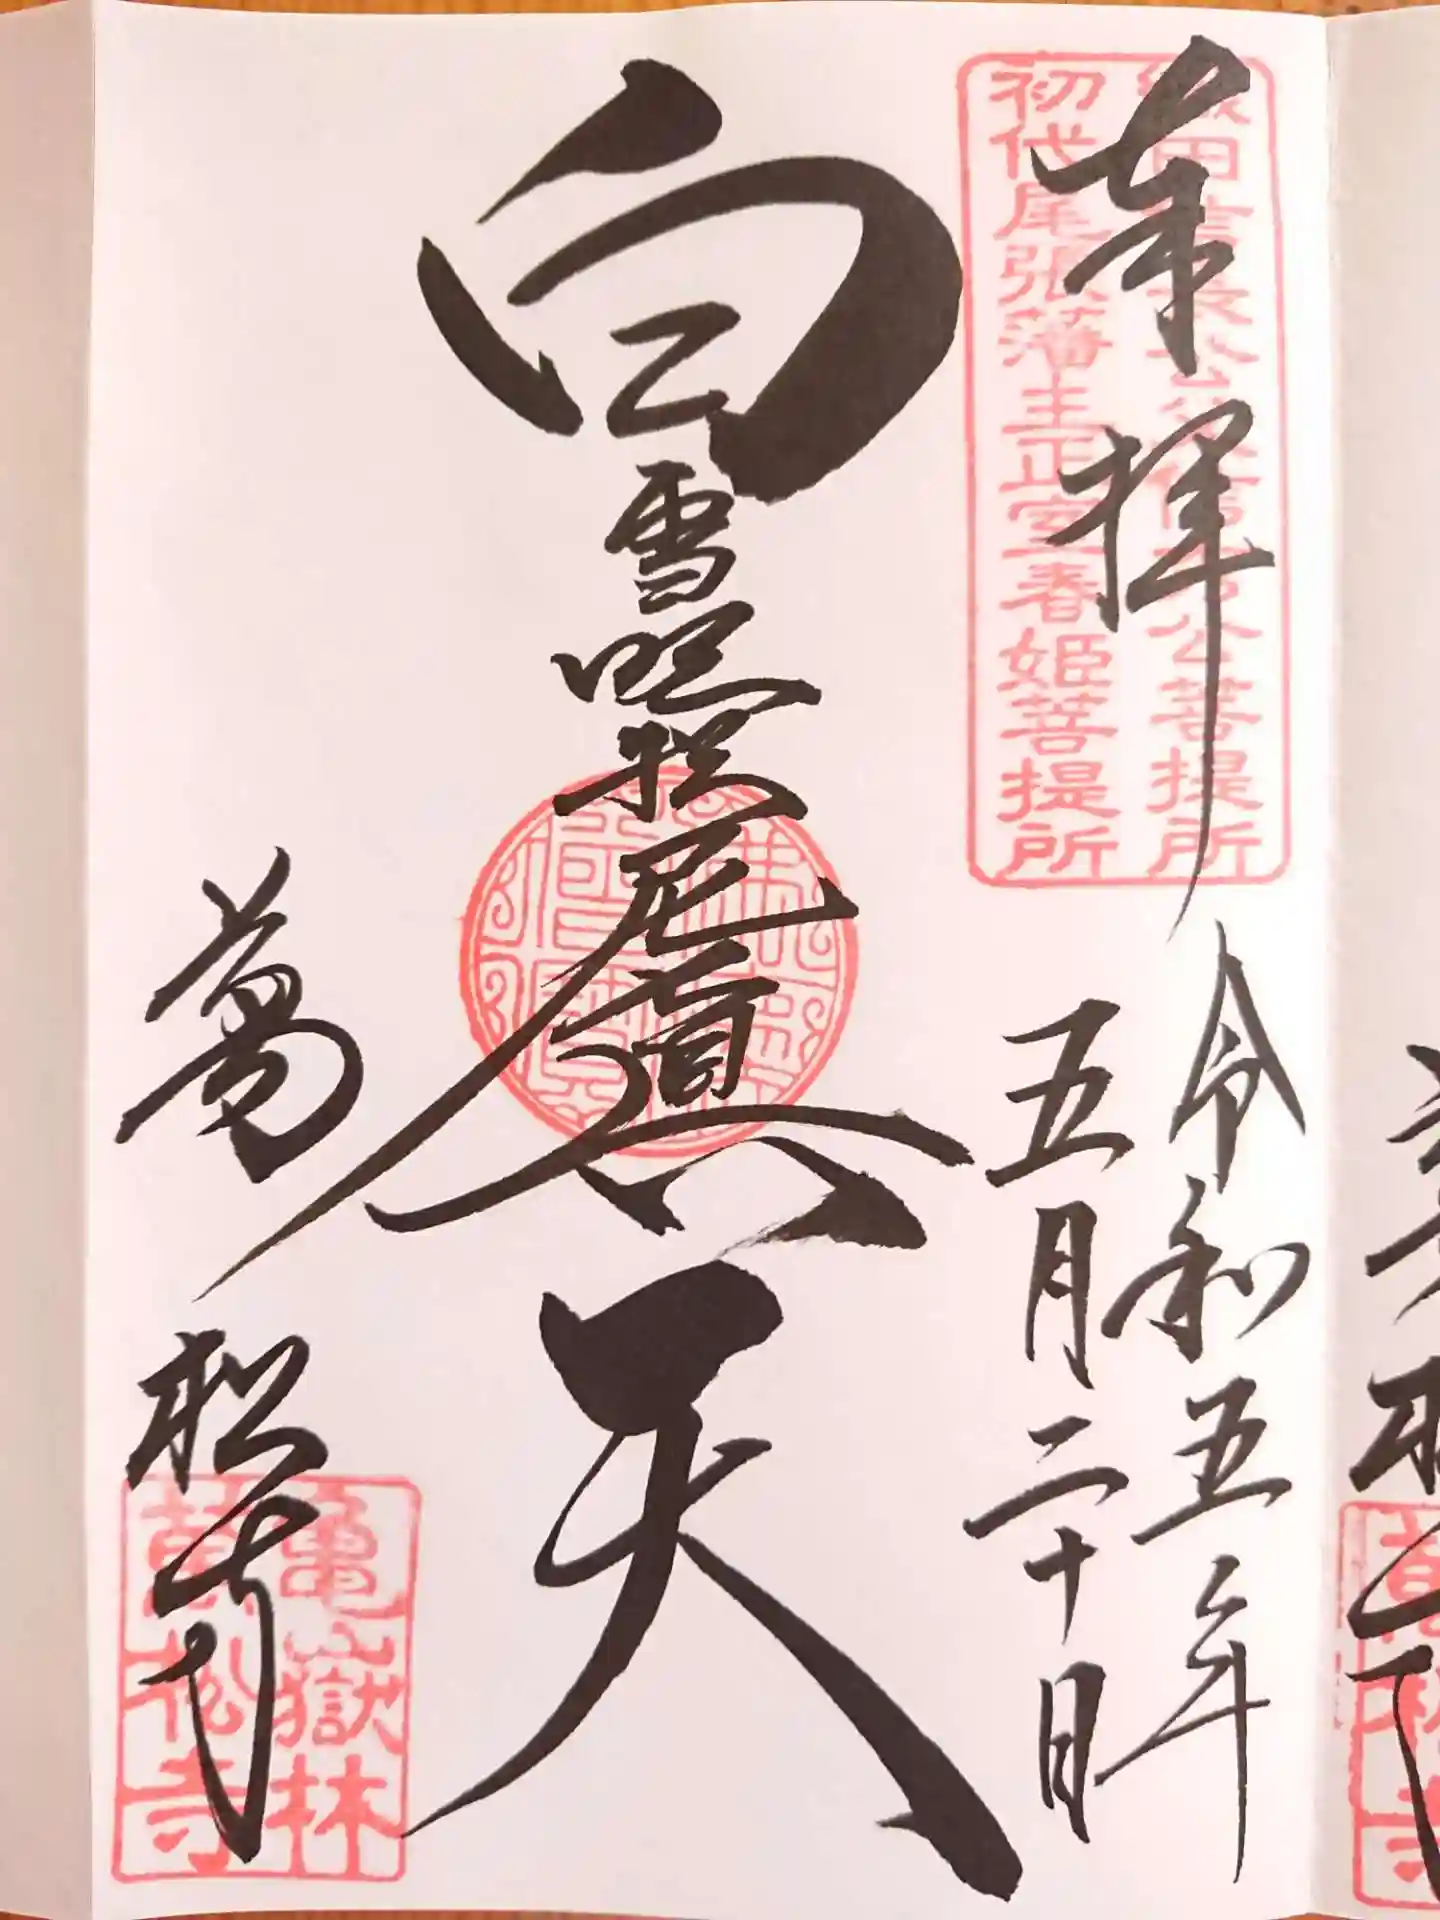 奉拝
織田信長公父信秀公菩提所
初代尾張藩主正室春姫菩提所
令和五年
五月二十日
白雪吒枳尼眞天
萬松寺
亀嶽林
萬松寺